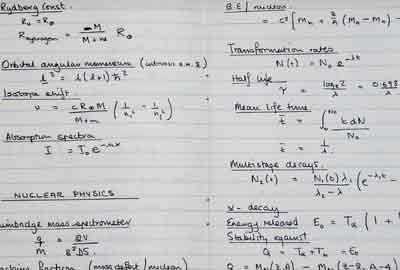 Rydberg Const.
R∞ = R∞
R Hydrogen = M / M + m R∞
Orbital angular momentum
L² = l(l+1) ħ²
Isotope shift
υ = c R∞ M / M+m (1/n₁² - 1/n₂²)
Absorption spectra
I = I₀ e
NUCLEAR PHYSICS
mass spectrometer
q/M = 2V / B²
fraction (mass defect / nucleon)
B.E / nucleon
= c² [ Mn + Z/A (MH - Mn) -
Transformation rates
N(t) = N₀ e^-λt
Half life
τ = loge 2 / λ = 0.693
Mean life time
t̄ = ∫ t dN / N₀
t̄ = 1/λ
Multistage decays.
N₂(t) = N₁(0) λ₁ / λ₂ - λ₁ ( e^-λ₁t -
α - decay
Energy released E₀ = Tα ( 1 +
Stability against
Q = Tα + Tb = E₀
Q = (Z, A) - (Z-2, A-4)